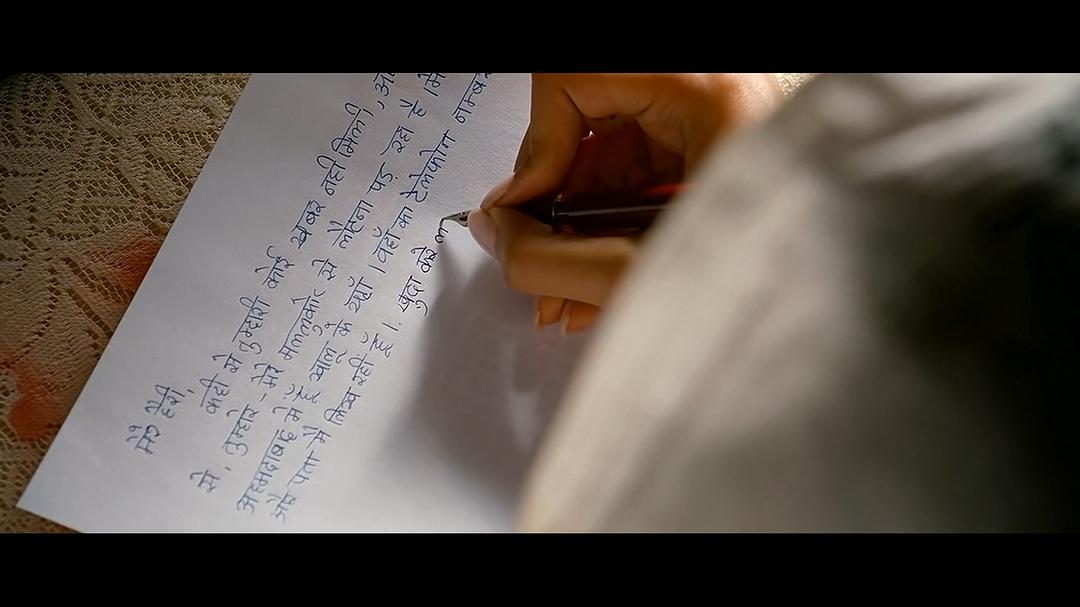 मेरे हैरी,
कहीं से तुम्हारी कोई खबर नहीं मिली, 
से, तुम्हारे - मेरे मुल्कों से लौटना पड़ रहा है।
अहमदाबाद में हूँ खालू के यहाँ। वहाँ का टेलेफोन नम्बर
और पता मैं लिख रही हूँ। खुदा करे